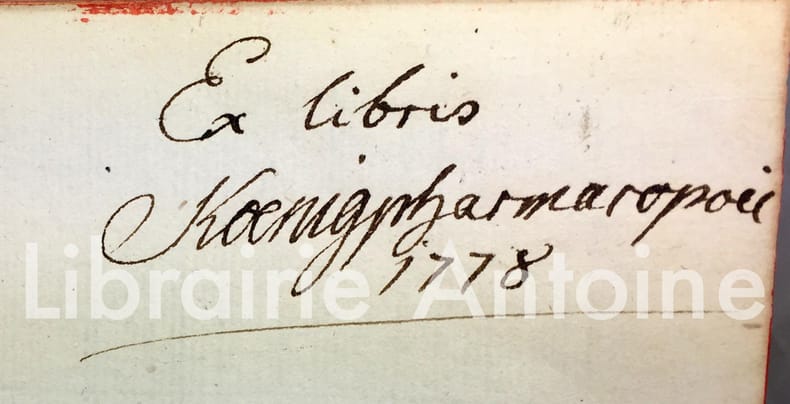 Ex libris
Kœnig pharmacopoii
1778
Librairie Antoine